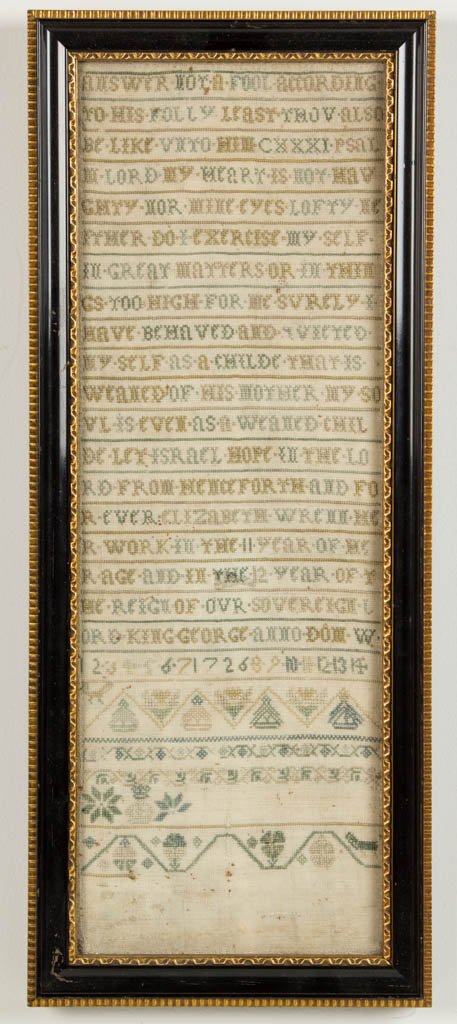 ANSWER NOT A FOOL ACCORDING
TO HIS FOLLY LEAST THOV ALSO
BE LIKE VNTO HIM CXXXI PSAL
M LORD MY HEART IS NOT HAV
GHTY NOR MINE EYES LOFTY NE
ITHER DO I EXERCISE MY SELF
IN GREAT MATTERS OR IN THIN
GS TOO HIGH FOR ME SVRELY I
HAVE BEHAVED AND QVIETED
MY SELF AS A CHILDE THAT IS
WEANED OF HIS MOTHER MY SO
VL IS EVEN AS A WEANED CHIL
DE LET ISRAEL HOPE IN THE LO
RD FROM HENCEFORTH AND FO
R EVER ELIZABETH WRENN HE
R WORK IN THE 11 YEAR OF HE
R AGE AND IN THE 12 YEAR OF T
HE REIGN OF OVR SOVEREIGN L
ORD KING GEORGE ANNO DOM W
1 2 3 4 5 6 7 1726 8 9 10 11 12 13 14